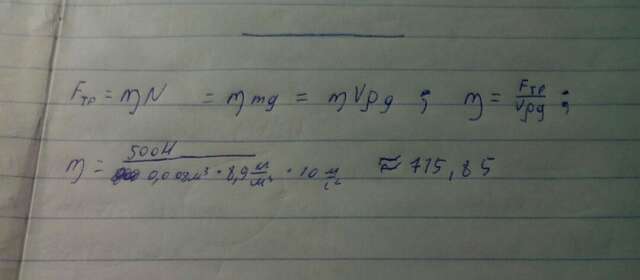 Fтр = ηN = ηmg = ηVρg ; η = Fтр/Vρg ;
η = 500Н / 0,008м³ · 8,9 м/м³ · 10 м/с² ≈ 715,85